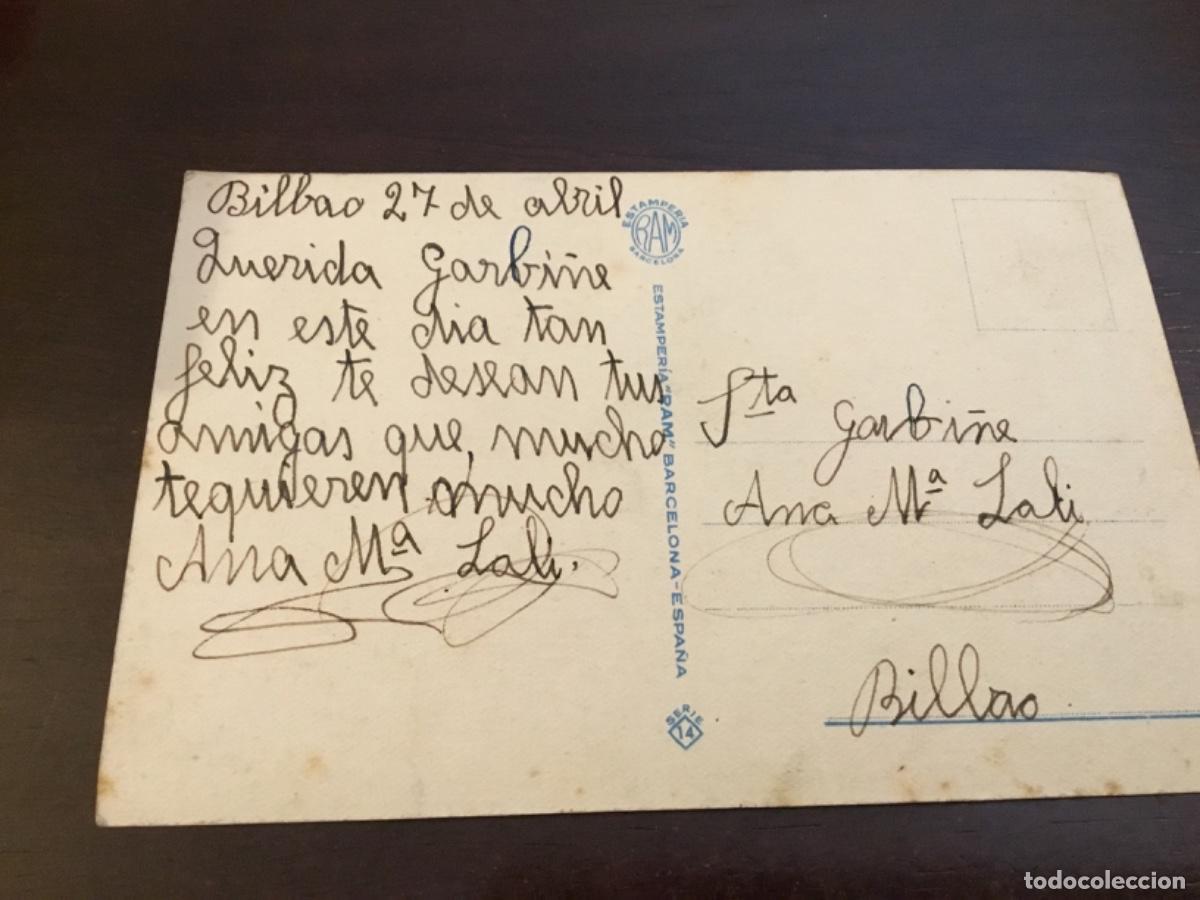 Bilbao 27 de abril
Querida Garbiñe
en este dia tan
feliz te desean tus
amigas que, mucho
tequieren mucho
Ana Mª Lali.
ESTAMPERIA
RAM
BARCELONA
ESTAMPERÍA "RAM" BARCELONA-ESPAÑA
SERIE
14
Sta Garbiñe
Ana Mª Lali
Bilbao.
todocoleccion